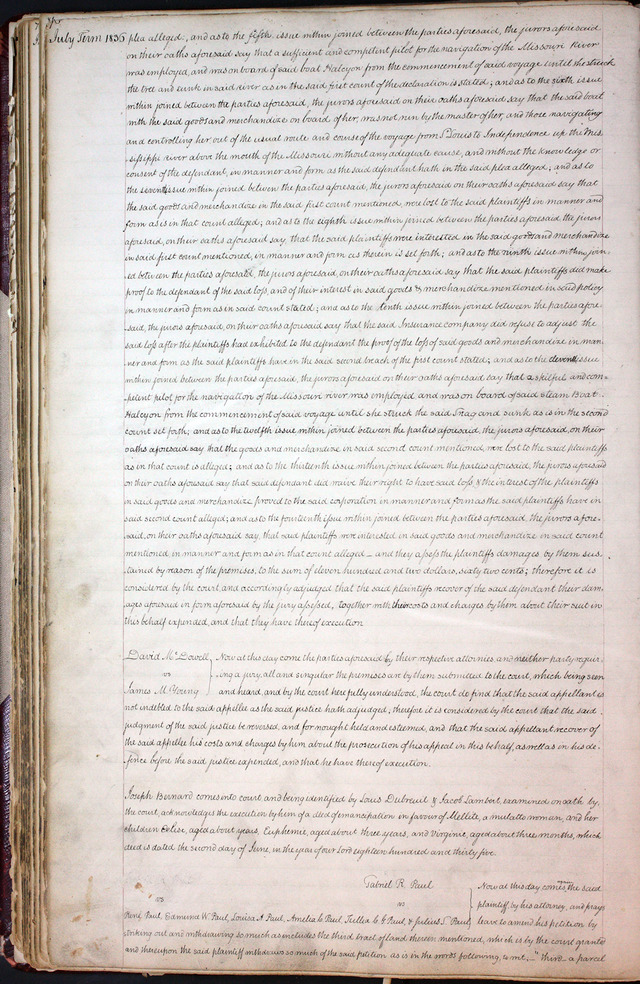 July Term 1836 plea alleged; and as to the fifth issue within joined between the parties aforesaid, the jurors aforesaid
on their oaths aforesaid say that a sufficient and competent pilot for the navigation of the Missouri River
was employed, and was on board of said boat Halcyon from the commencement of said voyage until she struck
the tree and sunk in said river as in the said first count of the declaration is stated; and as to the sixth issue
within joined between the parties aforesaid, the jurors aforesaid on their oaths aforesaid say that the said boat
with the said goods and merchandize on board of her, was not run by the master of her, and those navigating
and controlling her out of the usual route and course of the voyage from St Louis to Independence up the Mis
sissippi river above the mouth of the Missouri without any adequate cause, and without the knowledge or
consent of the defendant, in manner and form as the said defendant hath in the said plea alleged; and as to
the seventh issue within joined between the parties aforesaid, the jurors aforesaid on their oaths aforesaid say that
the said goods and merchandize in the said first count mentioned, were lost to the said plaintiffs in manner and
form as is in that count alleged; and as to the eighth issue within joined between the parties aforesaid the jurors
aforesaid, on their oaths aforesaid say, that the said plaintiffs were interested in the said goods and merchandize
in said first count mentioned, in manner and form as therein is set forth; and as to the ninth issue within join
ed between the parties aforesaid, the jurors aforesaid, on their oaths aforesaid say that the said plaintiffs did make
proof to the defendant of the said loss, and of their interest in said goods & merchandize mentioned in said policy
in manner and form as in said count stated; and as to the tenth issue within joined between the parties afore
said, the jurors aforesaid, on their oaths aforesaid say that the said Insurance company did refuse to adjust the
said loss after the plaintiffs had exhibited to the defendant the proof of the loss of said goods and merchandize in man
ner and form as the said plaintiffs have in the said second breach of the first count stated; and as to the eleventh issue
within joined between the parties aforesaid, the jurors aforesaid on their oaths aforesaid, say that a skilful and com
petent pilot for the navigation of the Missouri river was employed, and was on board of said steam Boat
Halcyon from the commencement of said voyage until she struck the said snag and sunk as is in the second
count set forth; and as to the twelfth issue within joined between the parties aforesaid, the jurors aforesaid, on their
oaths aforesaid say that the goods and merchandize in said second count mentioned, were lost to the said plaintiffs
as in that count is alleged; and as to the thirteenth issue within joined between the parties aforesaid, the jurors aforesaid
on their oaths aforesaid say that said defendant did waive their right to have said loss, & the interest of the plaintiffs
in said goods and merchandize proved to the said corporation in manner and form as the said plaintiffs have in
said second count alleged; and as to the fourteenth issue within joined between the parties aforesaid, the jurors afore
said, on their oaths aforesaid say, that said plaintiffs were interested in said goods and merchandize in said count
mentioned in manner and form as in that count alleged — and they assess the plaintiffs damages by them sus
tained by reason of the premises, to the sum of eleven hundred and two dollars, sixty two cents; therefore it is
considered by the court, and accordingly adjudged that the said plaintiffs recover of the said defendant their dam
ages aforesaid in form aforesaid by the jury assessed, together with their costs and charges by them about their suit in
this behalf expended, and that they have thereof execution
David McDowell Now at this day come the parties aforesaid by their respective attornies and neither party requir
vs ing a jury, all and singular the premises are by them submitted to the court, which being seen
James M. Young and heard, and by the court here fully understood, the court do find that the said appellant is
not indebted to the said appellee as the said justice hath adjudged; therefore it is considered by the court that the said
judgment of the said justice be reversed, and for nought held and esteemed, and that the said appellant recover of
the said appellee his costs and charges by him about the prosecution of his appeal in this behalf, as well as in his de
fence before the said justice expended, and that he have thereof execution.
Joseph Bernard comes into court, and being identified by Louis Dubreuil & Jacob Lambert, examined on oath by,
the court, acknowledges the execution by him of a deed of emancipation in favour of Mellite, a mulatto woman, and her
children aged about years, Euphemie, aged about three years, and Virginie, aged about three months, which
deed is dated the second day of June, in the year of our Lord eighteen hundred and thirty five.
Gabriel R. Paul Now at this day comes again the said
vs vs plaintiff by his attorney, and prays
René Paul, Edmund W. Paul, Louisa A Paul, Amelia Paul, & Julius S. Paul leave to amend his petition by
striking out and withdrawing so much as includes the third tract of land therein mentioned, which is by the court granted
and thereupon the said plaintiff withdraws so much of the said petition as is in the words following, to wit, — "third — a parcel